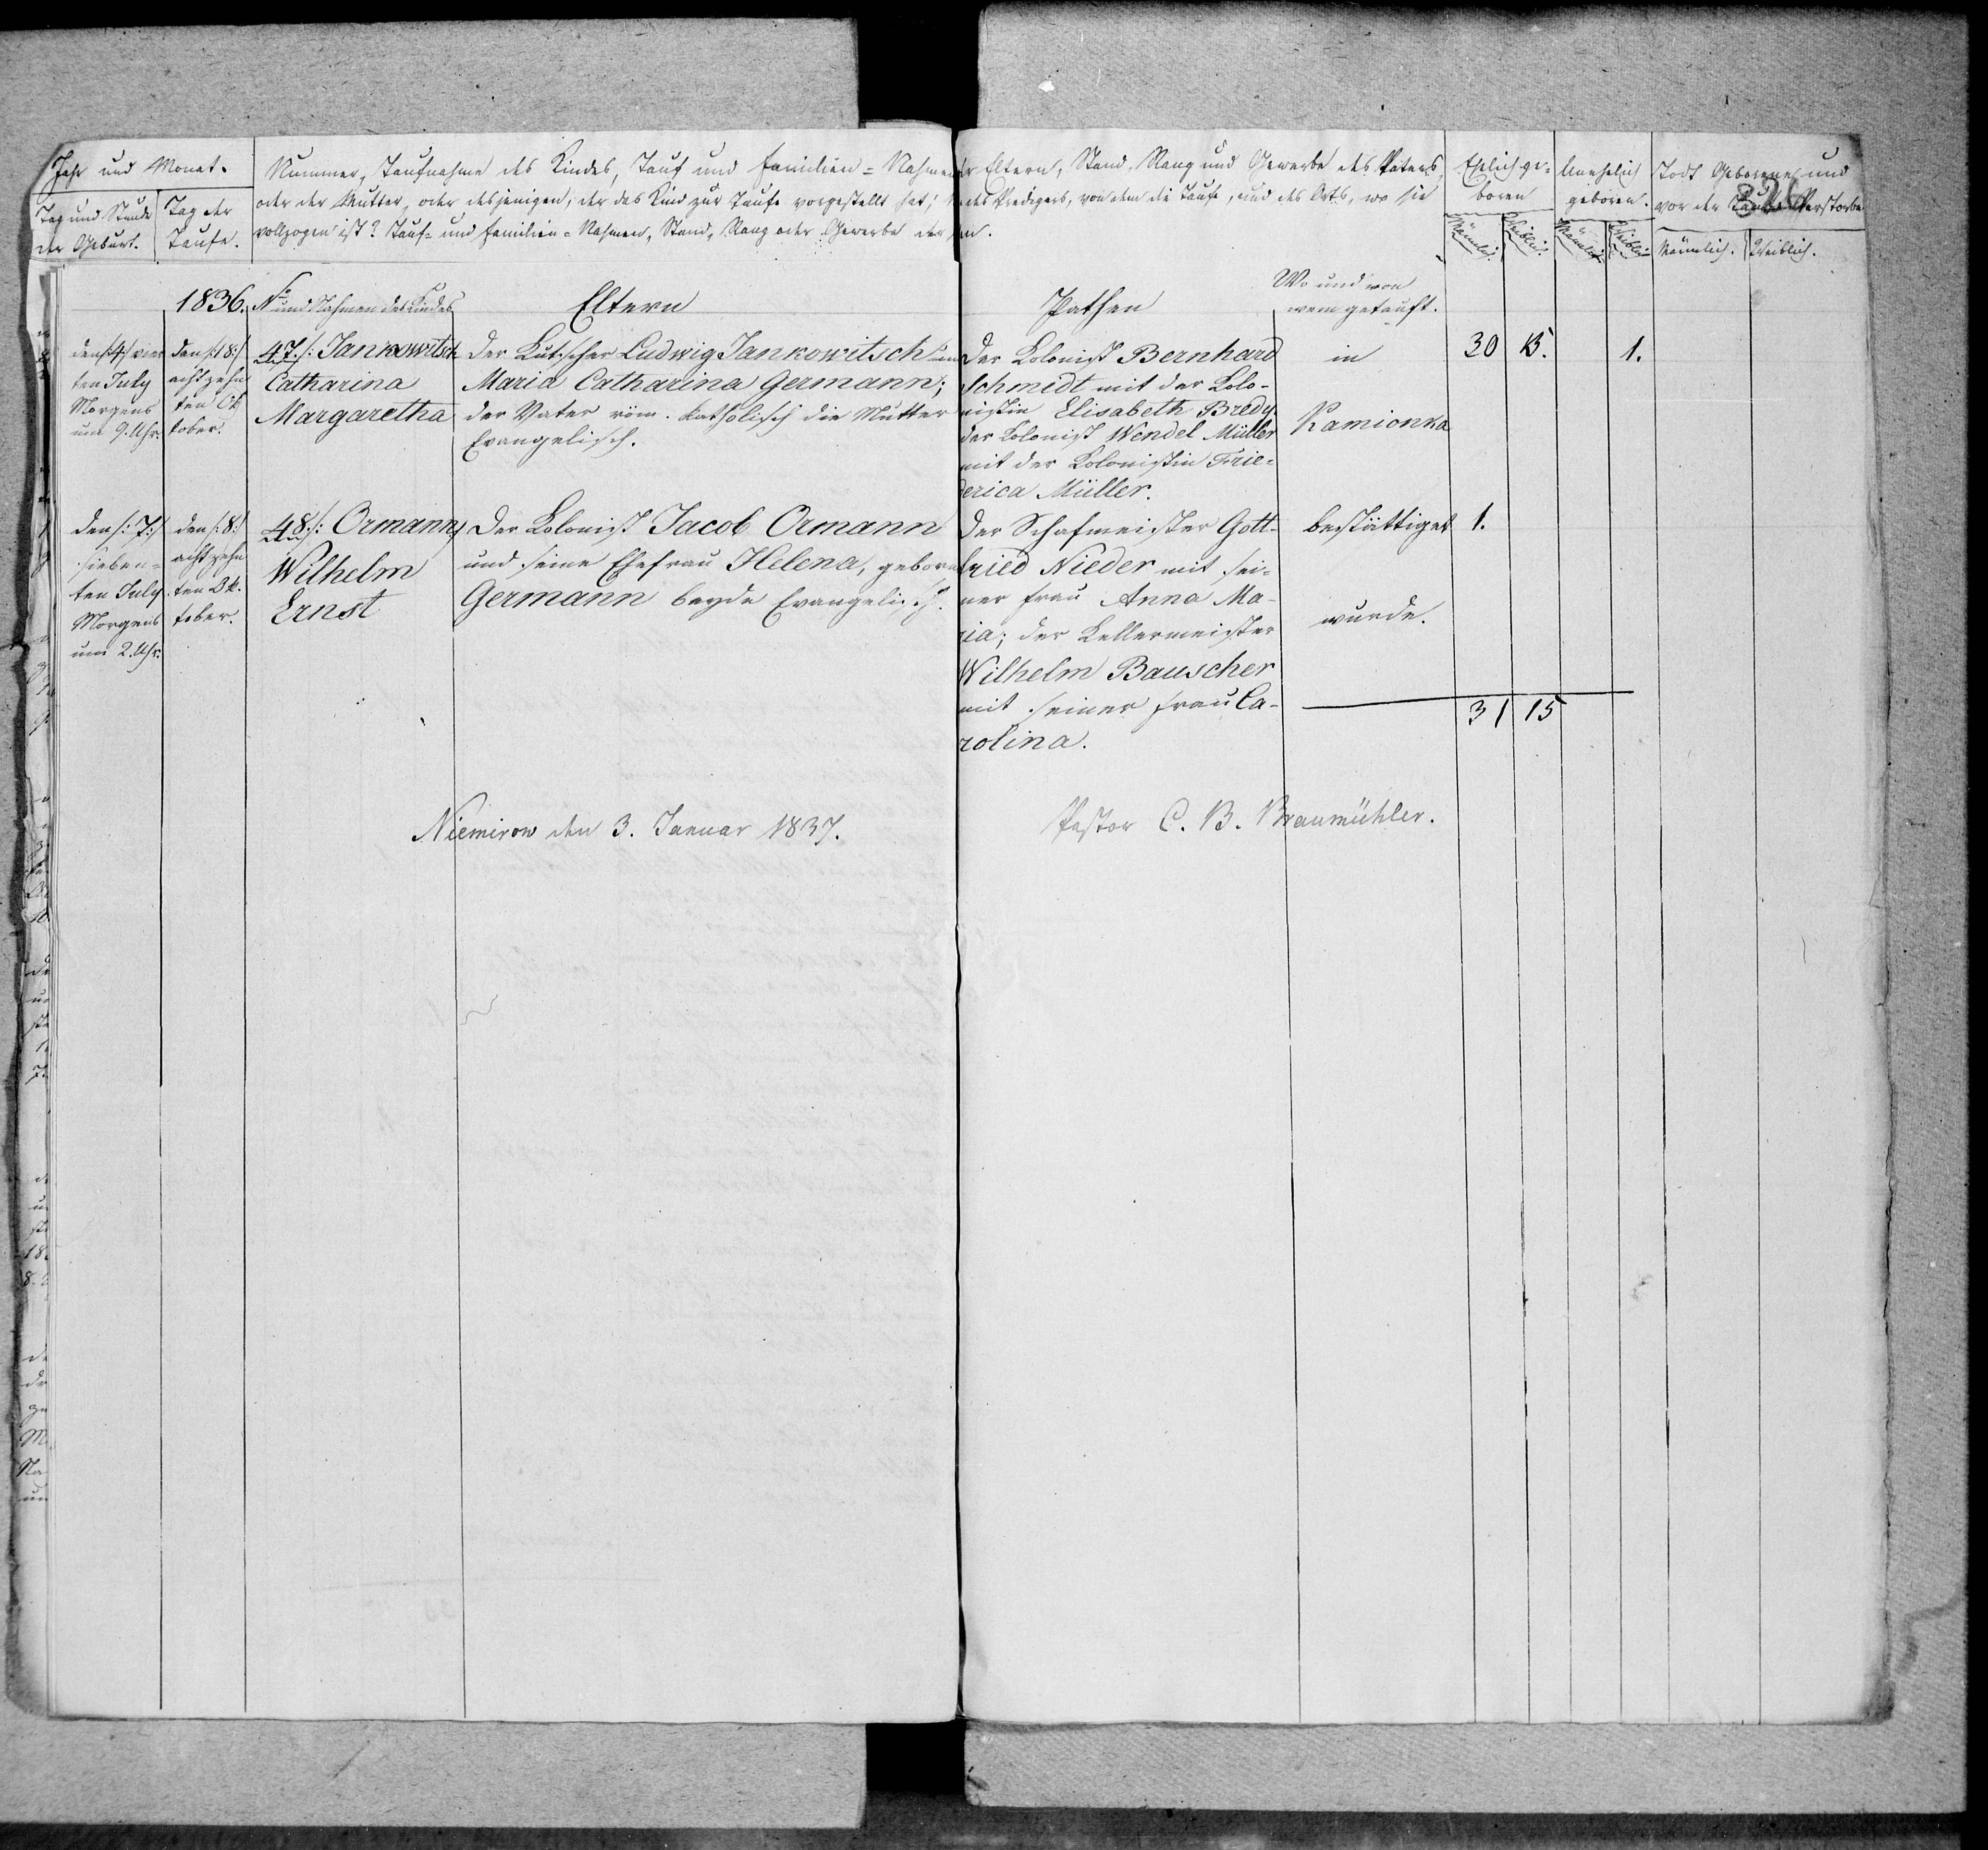 Jahr und Monat.
Tag und Stunde der Geburt.
Tag der Taufe.
Nummer, Taufnahme des Kindes, Tauf und Familien=Nahmen der Eltern, Stand, Rang und Gewerbe des Vaters,
oder der Mutter, oder desjenigen, der das Kind zur Taufe vorgestellt hat; des Predigers, von dem die Taufe, und des Orts, wo sie
vollzogen ist? Tauf= und Familien=Nahmen, Stand, Rang oder Gewerbe der
Ehlich ge=
boren
Männlich.
Weiblich.
Unehelich
geboren.
Männlich
Weiblich
Todt Geborene und
vor der Taufe Verstorbe
Männlich.
Weiblich.
1836.
No und Nahmen des Kindes
Eltern
Pathen
Wo und von
wem getauft.
den /:4:/ vier
ten July
Morgens
um 9. Uhr.
den /:18:/
acht zehn
ten Ok
tober.
47./: Jankowitsch
Catharina
Margaretha
Der Kutscher Ludwig Jankowitsch und
Maria Catharina Germann;
der Vater röm. Katholisch die Mutter
Evangelisch.
Der Kolonist Bernhard
Schmidt mit der Kolo-
nistin Elisabeth Bredy
der Kolonist Wendel Müller
mit der Kolonistin Frie-
derica Müller.
in
Kamionka
30
15.
1.
den /:7:/
sieben=
ten July
Morgens
um 2. Uhr.
den /:18:/
acht zehn
ten Ok.
tober.
48./: Ormann
Wilhelm
Ernst
Der Kolonist Jacob Ormann
und seine Ehefrau Helena, geborne
Germann beyde Evangelisch.
Der Schafmeister Gott-
fried Nieder mit sei-
ner Frau Anna Ma-
ria; der Kellermeister
Wilhelm Bauscher
mit seiner Frau Ca-
rolina.
bestättiget
wurde.
1.
31
15
Niemirow den 3. Januar 1837.
Pastor C. B. Braumühler.